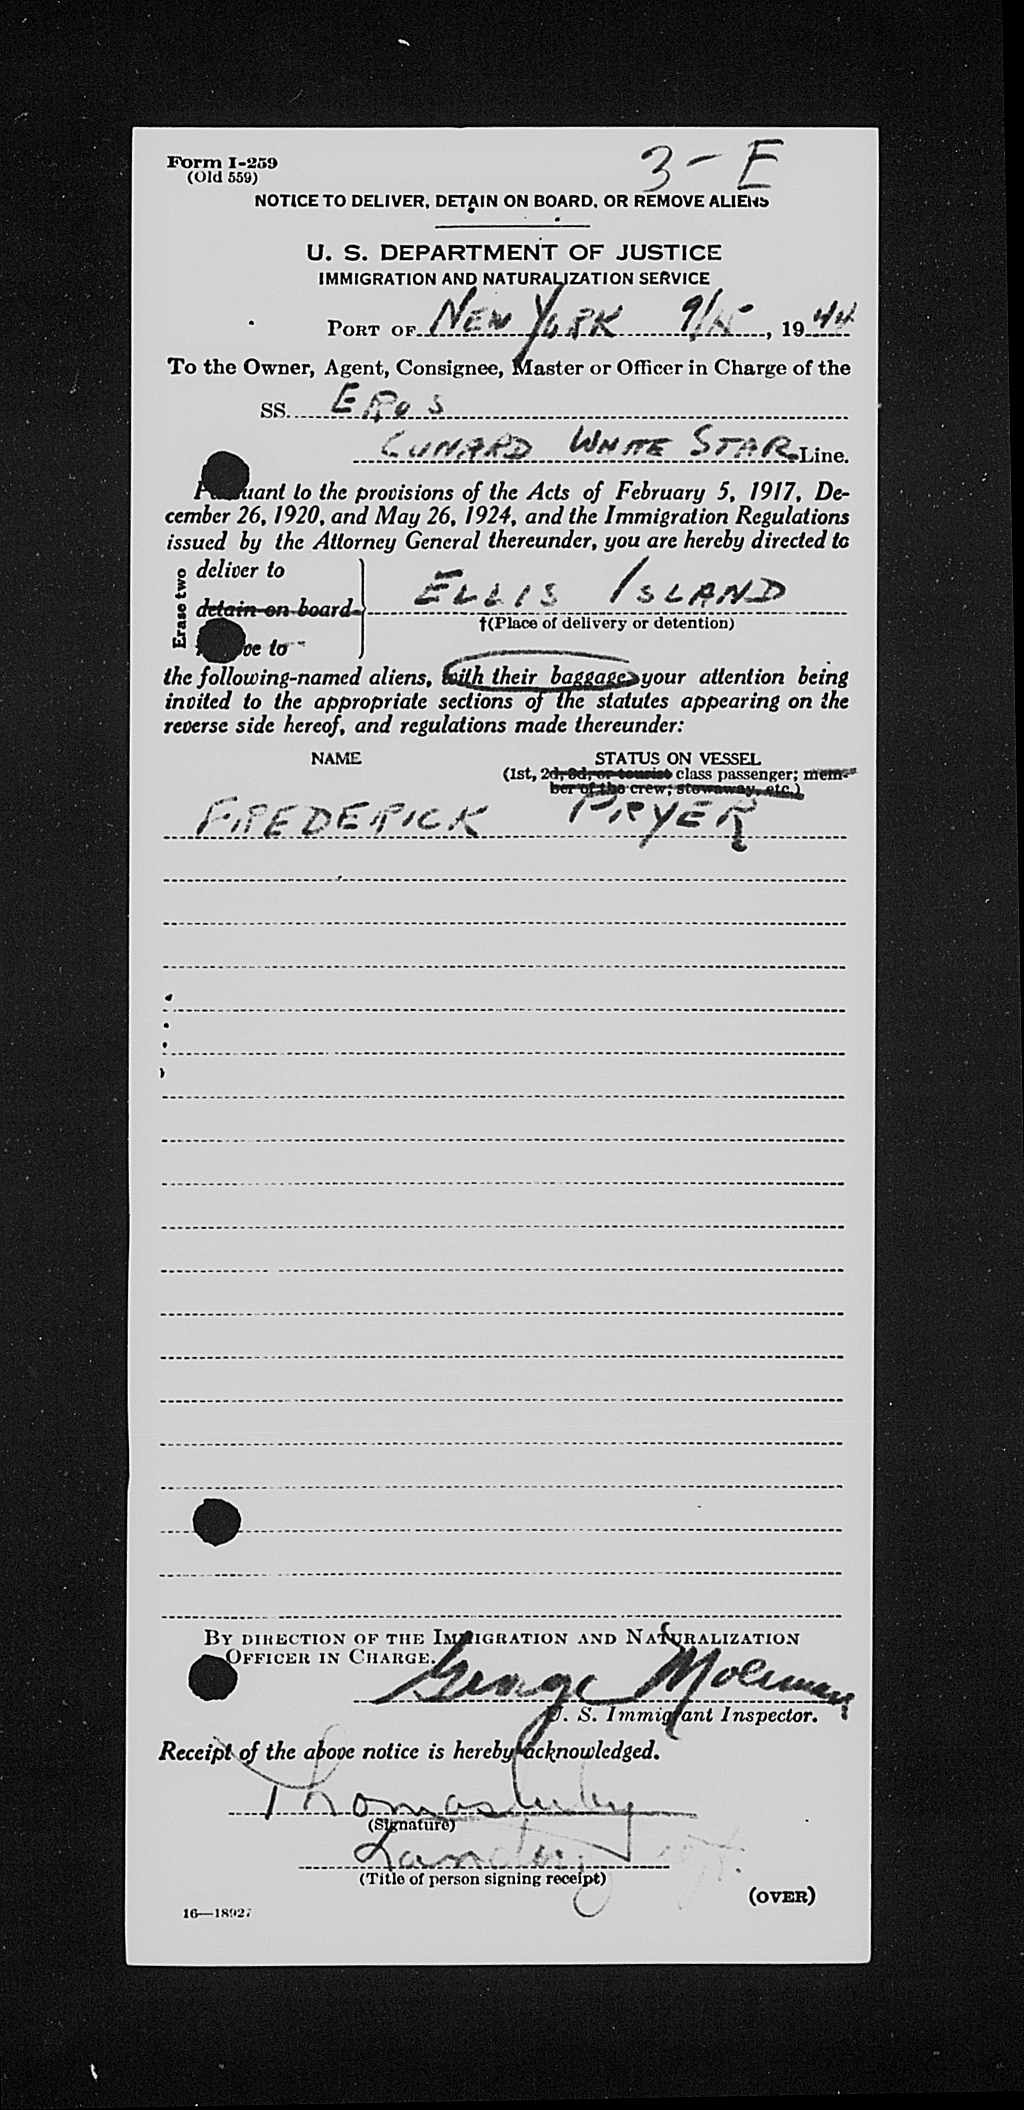 Form I-259
(Old 559)
3 - E
NOTICE TO DELIVER, DETAIN ON BOARD, OR REMOVE ALIENS
U. S. DEPARTMENT OF JUSTICE
IMMIGRATION AND NATURALIZATION SERVICE
PORT OF NEW YORK 9/15, 1944
To the Owner, Agent, Consignee, Master or Officer in Charge of the
SS. EROS
CUNARD WHITE STAR Line.
Pursuant to the provisions of the Acts of February 5, 1917, De-
cember 26, 1920, and May 26, 1924, and the Immigration Regulations
issued by the Attorney General thereunder, you are hereby directed to
Erase two
deliver to
detain on board
ve to
ELLIS ISLAND
†(Place of delivery or detention)
the following-named aliens, with their baggage, your attention being
invited to the appropriate sections of the statutes appearing on the
reverse side hereof, and regulations made thereunder:
NAME STATUS ON VESSEL
(1st, 2d, 3d, or tourist class passenger; mem-
ber of the crew; stowaway, etc.)
FREDERICK PRYER
BY DIRECTION OF THE IMMIGRATION AND NATURALIZATION
OFFICER IN CHARGE.
George
U. S. Immigrant Inspector.
Receipt of the above notice is hereby acknowledged.
Thomas
(Signature)
Landing
(Title of person signing receipt)
(OVER)
16—18927